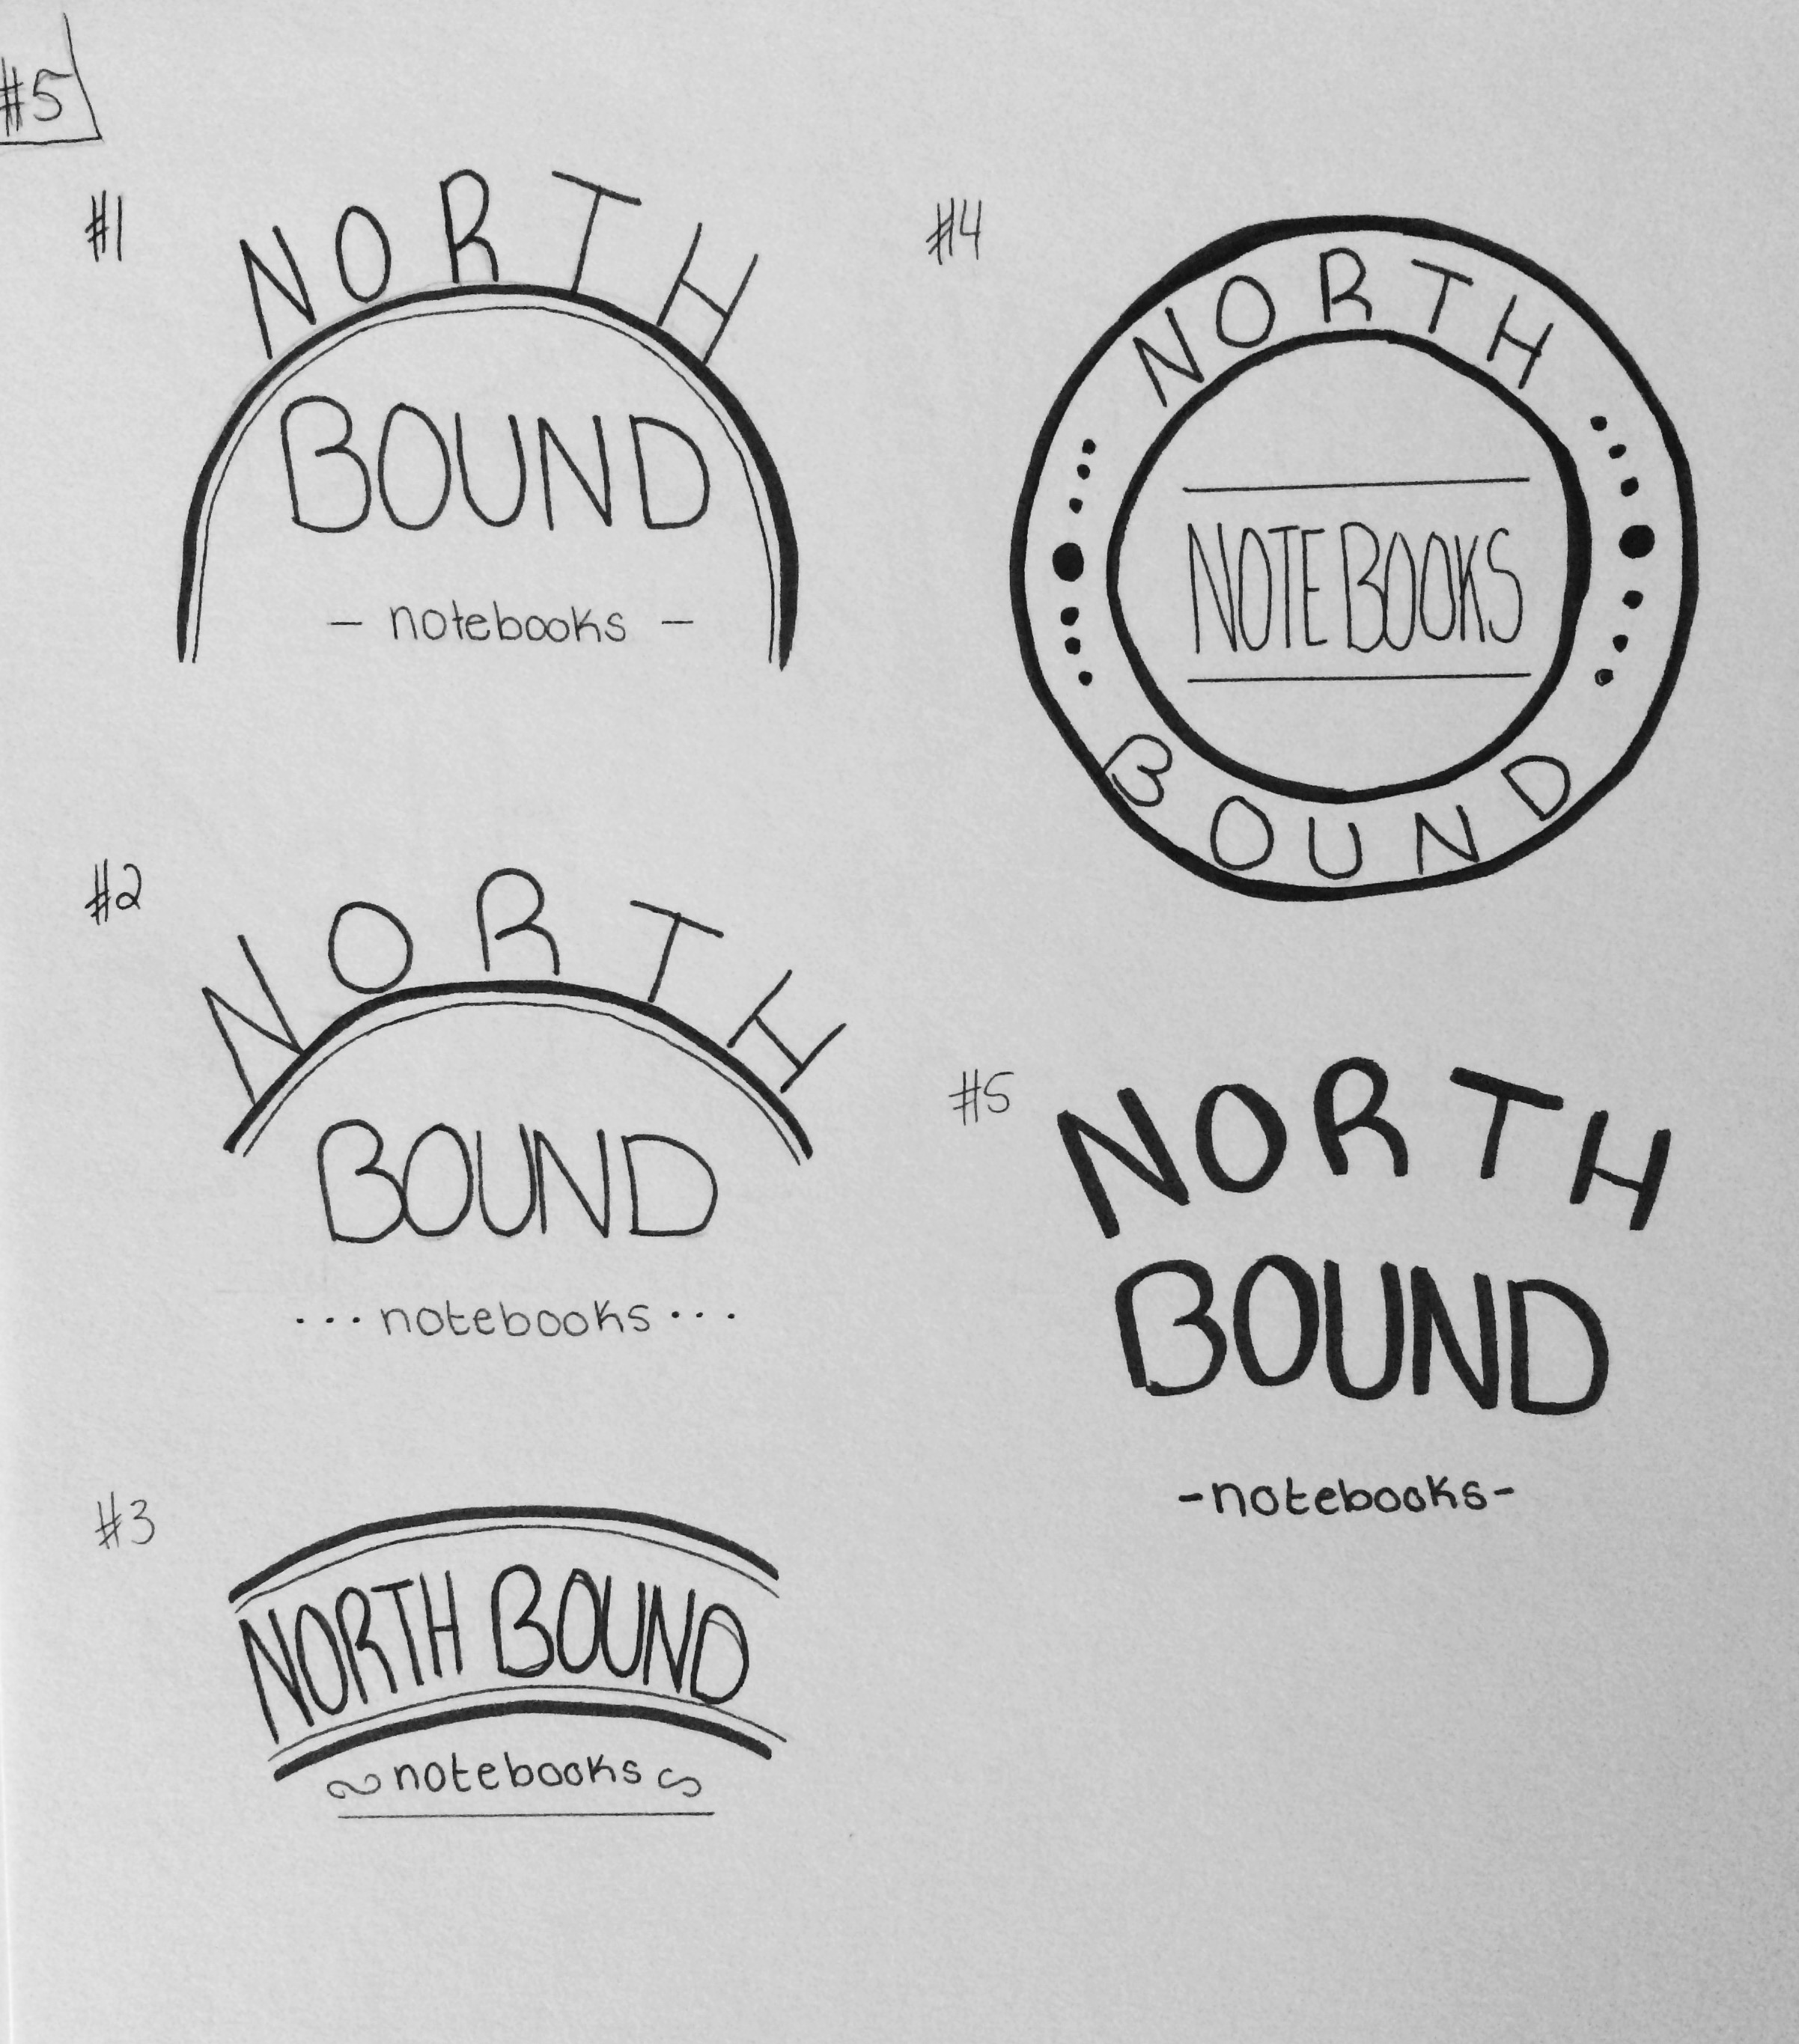 #5
#1
NORTH
BOUND
- notebooks -
#2
NORTH
BOUND
...notebooks...
#3
NORTH BOUND
~notebooks~
#4
NORTH
NOTEBOOKS
BOUND
#5
NORTH
BOUND
-notebooks-